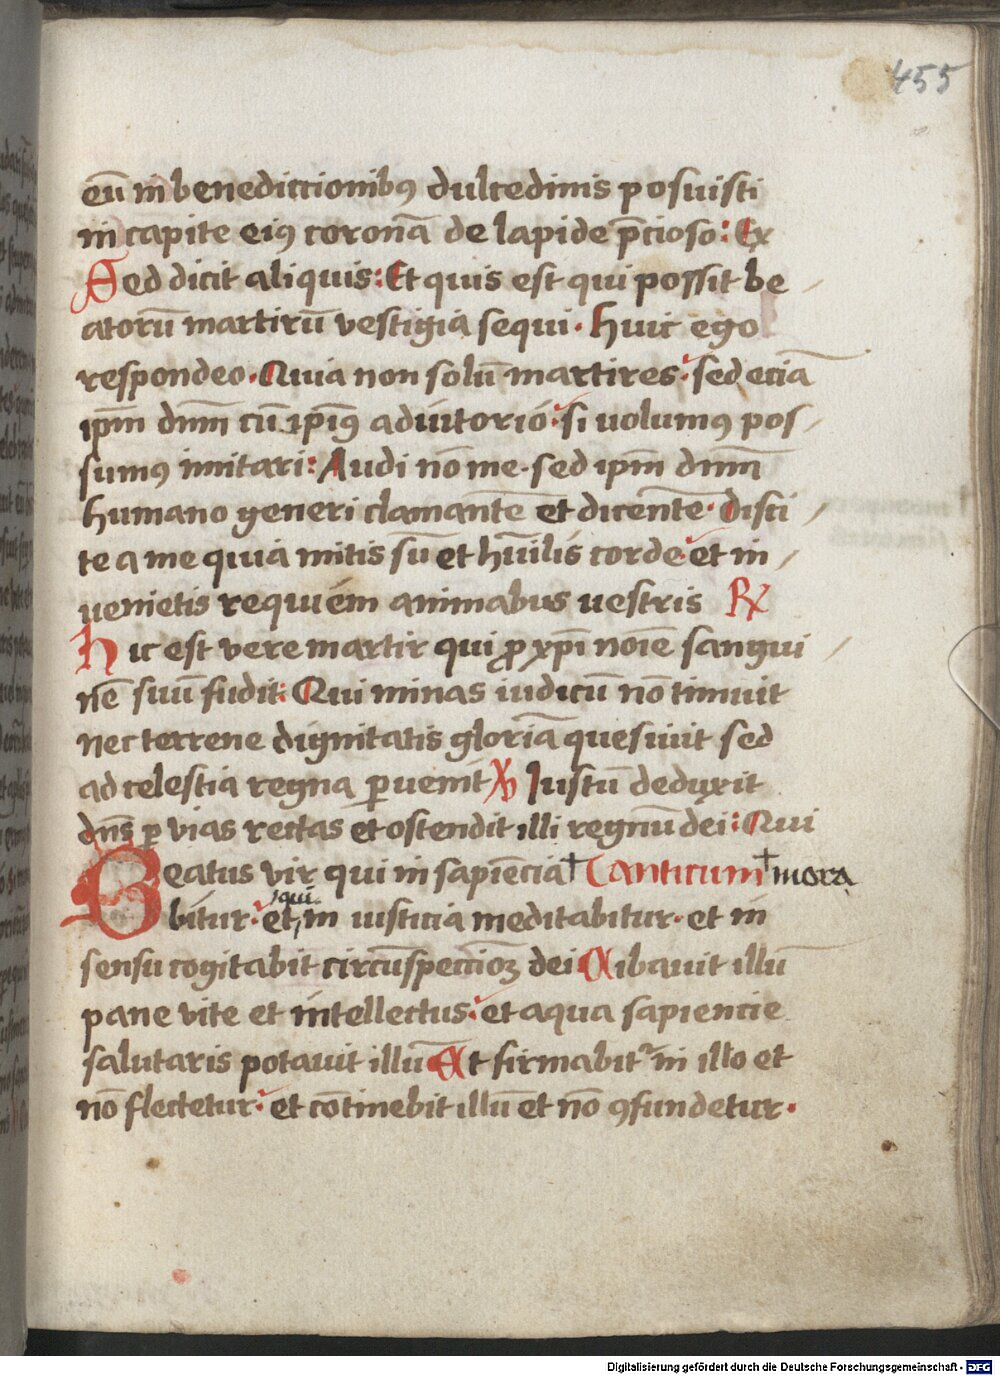 455
eū in benedictionibꝰ dulcedinis posuisti
in capite eiꝰ coronā de lapide p̄cioso: Ex
Sed dicit aliquis: Et quis est qui possit be
atorū martirū vestigia sequi. Huic ego
respondeo. Quia non solū martires: sed eciā
ipm̄ dnm̄ cū ipiꝰ adiutorio: si uolumꝰ pos
sumꝰ imitari: Audi nō me. sed ipm̄ dnm̄
humano generi clamantē et dicentē. disci
te a me quia mitis sū et hūilis corde: et in
uenietis requiem animabus uestris R̸
Hic est vere martir qui ꝓ xp̄i noīe sangui
nē suū fudit: Qui minas iudicū nō timuit
nec terrene dignitatis gloriā quesiuit sed
ad celestia regna ꝑuenit V̸ Iustū deduxit
dn̄s ꝑ vias rectas et ostendit illi regnū dei: Qui
Beatus vir qui in sapiēcia† Canticum †mora
bitur: et qui in iusticia meditabitur. et in
sensu cogitabit circūspectioꝫ dei Cibauit illū
pane vite et intellectus: et aqua sapiencie
salutaris potauit illū Et firmabitᷣ in illo et
nō flectetur: et cōtinebit illū et nō ꝯfundetur.
Digitalisierung gefördert durch die Deutsche Forschungsgemeinschaft - DFG